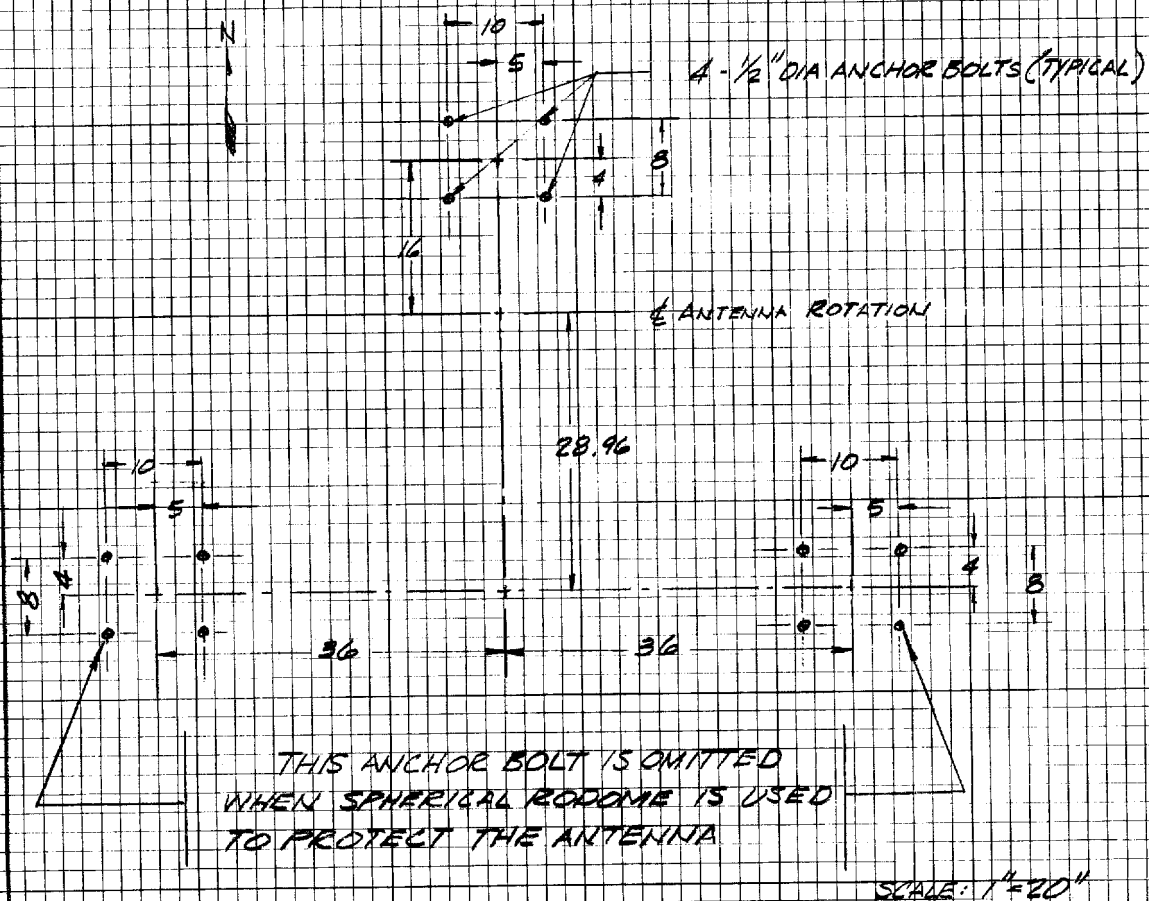 N
10
5
4 - 1/2" DIA ANCHOR BOLTS (TYPICAL)
8
4
16
℄ ANTENNA ROTATION
28.96
10
5
4
8
10
5
4
8
36
36
THIS ANCHOR BOLT IS OMITTED
WHEN SPHERICAL RODOME IS USED
TO PROTECT THE ANTENNA
SCALE: 1"=20"